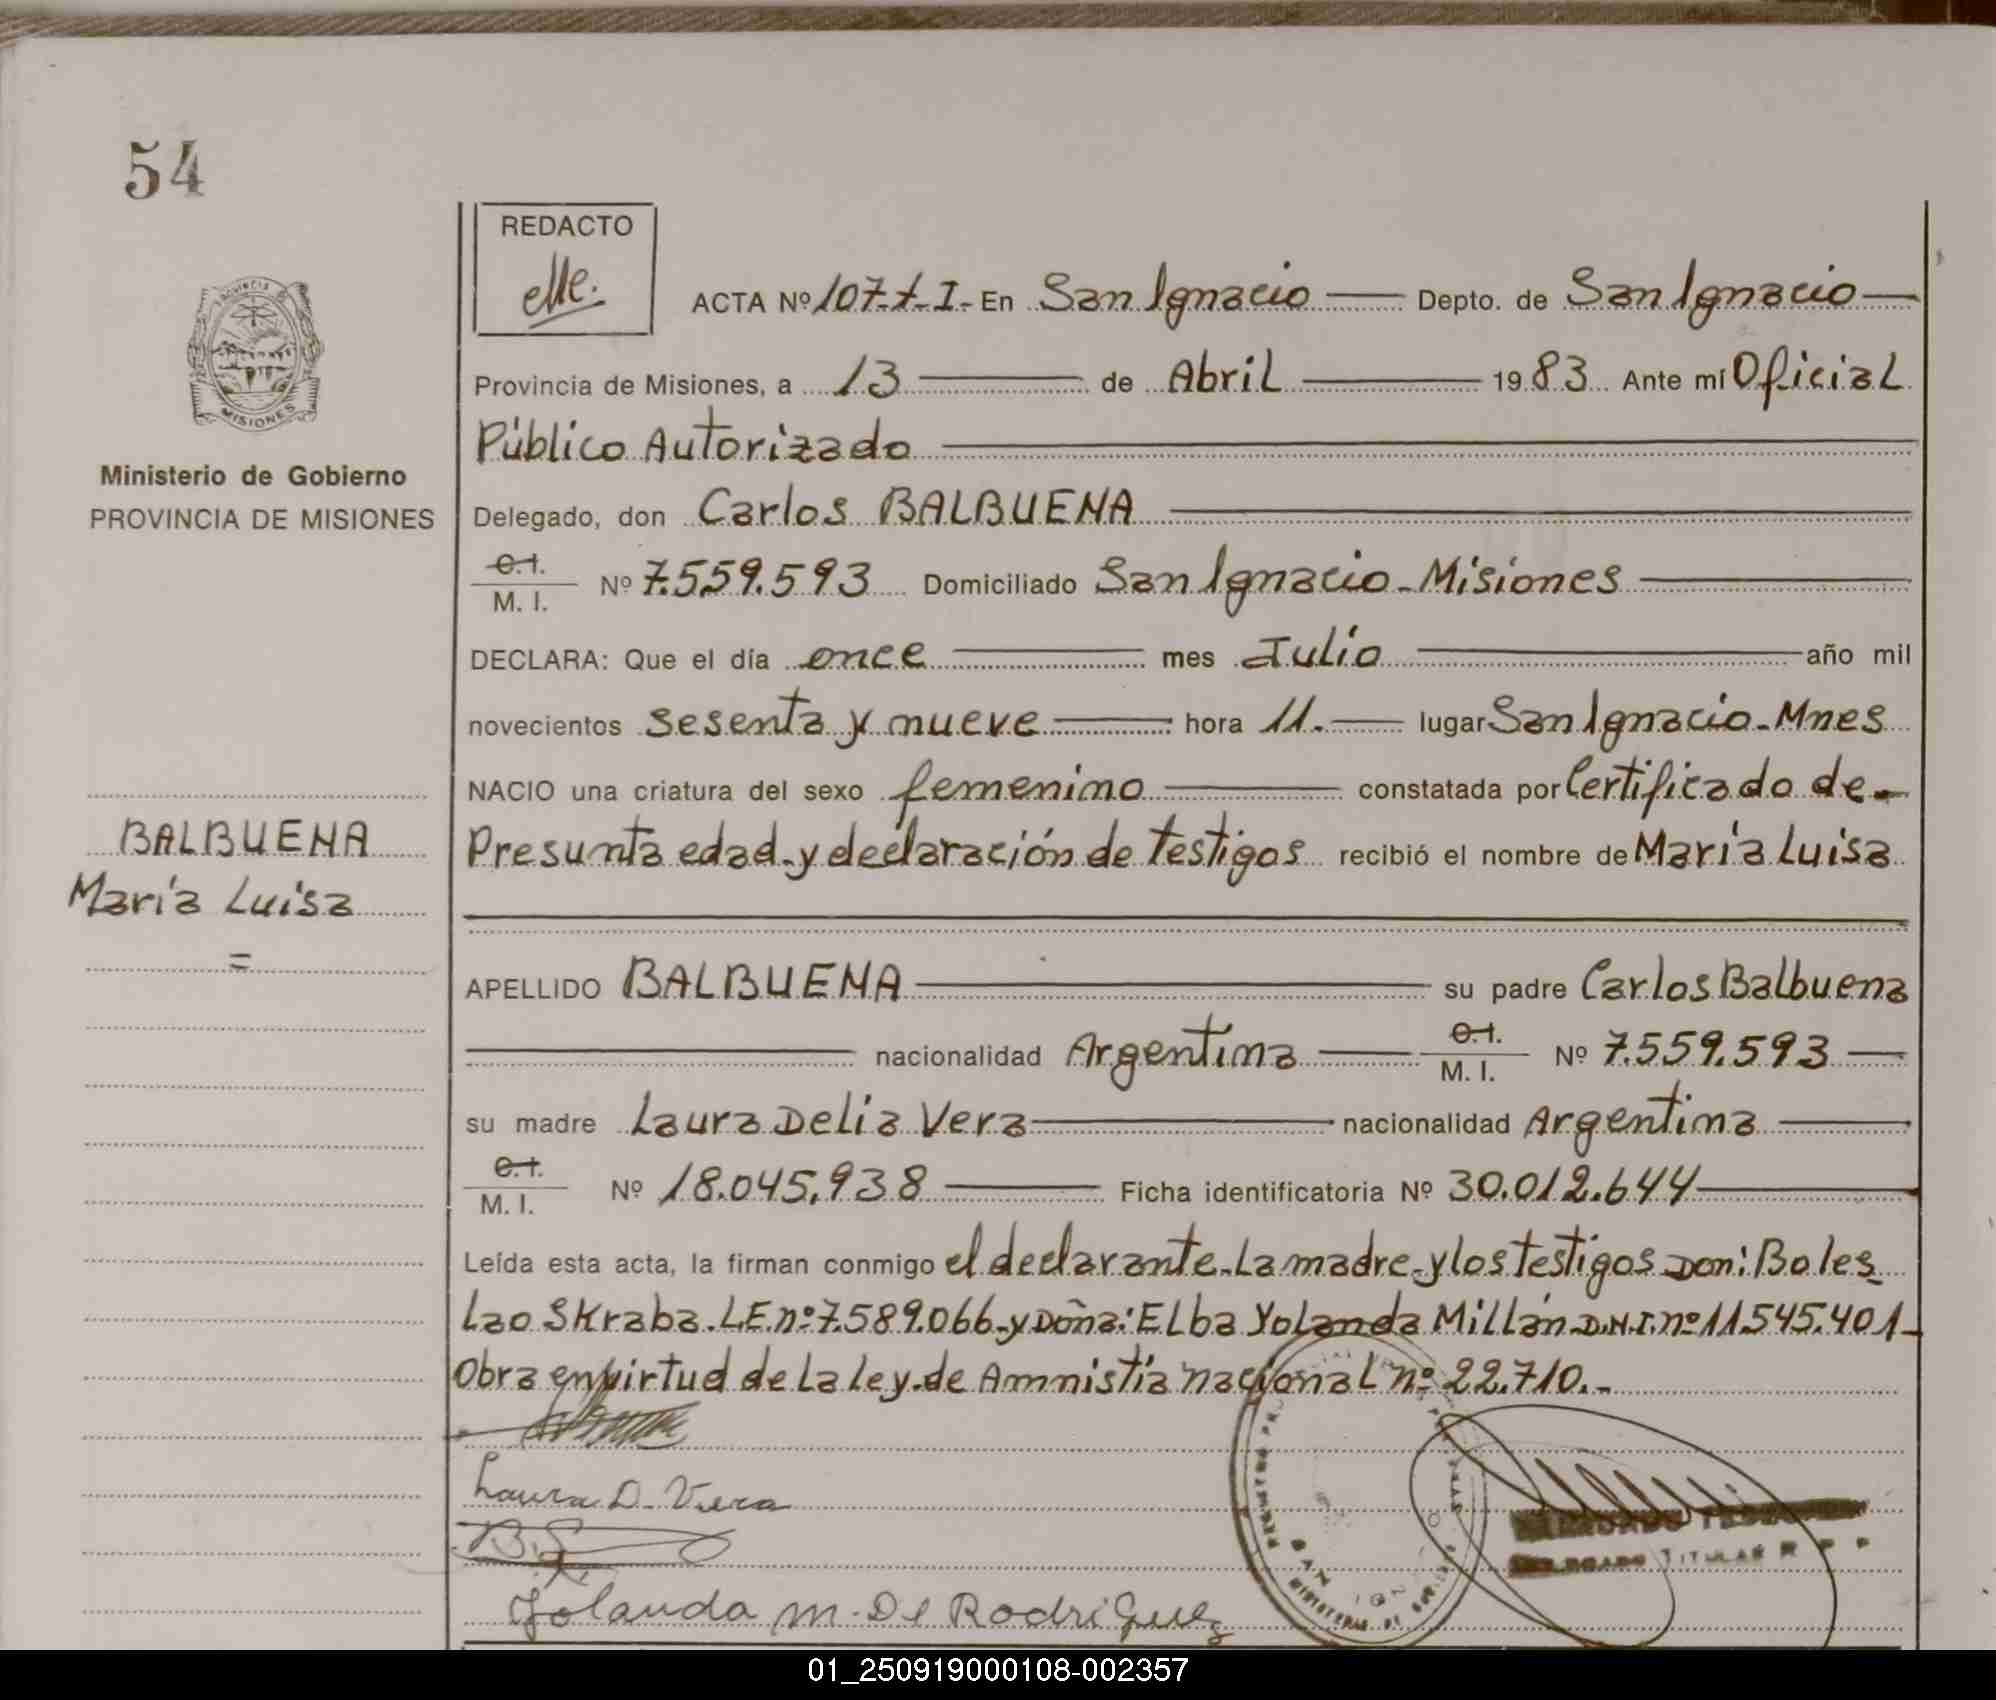 54
REDACTO
ACTA Nº 107-t-I- En San Ignacio Depto. de San Ignacio
Provincia de Misiones, a 13 de Abril 1983 Ante mí Oficial
Público Autorizado
Delegado, don Carlos BALBUENA
C.I. M. I. Nº 7.559.593 Domiciliado San Ignacio-Misiones
DECLARA: Que el día once mes Julio año mil
novecientos sesenta y nueve hora 11. lugar San Ignacio-Mnes
NACIO una criatura del sexo femenino constatada por Certificado de-
Presunta edad-y declaración de testigos recibió el nombre de María Luisa
APELLIDO BALBUENA su padre Carlos Balbuena
nacionalidad Argentina C.I. M. I. Nº 7.559.593
su madre Laura Delia Vera nacionalidad Argentina
C.I. M. I. Nº 18.045.938 Ficha identificatoria Nº 30.012.644
Leída esta acta, la firman conmigo el declarante-la madre-y los testigos Don: Boles
lao Skraba. L.E.nº:7.589.066-y Doña: Elba Yolanda Millán D.N.I.nº11.545.401-
Obra en virtud de la ley-de Amnistía nacional nº 22.710.-
Laura D. Vera
B.S
Yolanda M. De Rodriguez
DELEGADO TITULAR R P P
PROVINCIA DE
MISIONES
Ministerio de Gobierno
PROVINCIA DE MISIONES
BALBUENA
María Luisa
=
01_250919000108-002357